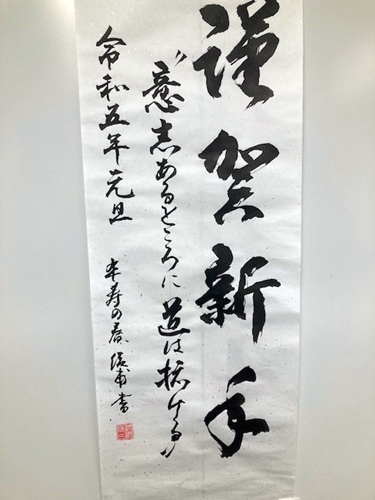 謹賀新年
"意志あるところに道は拓ける"
令和五年元旦
傘寿の春 書